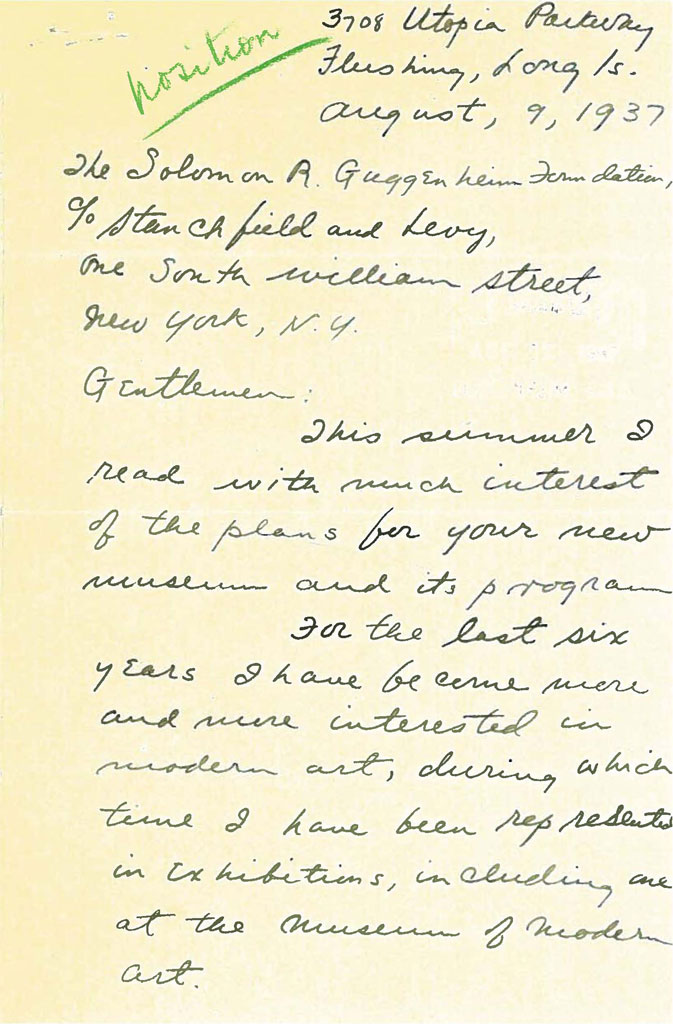 position
3708 Utopia Parkway
Flushing, Long Is.
August, 9, 1937
The Solomon R. Guggenheim Foundation,
c/o Stanchfield and Levy,
One South William Street,
New York, N.Y.
Gentlemen:
This summer I
read with much interest
of the plans for your new
museum and its program
For the last six
years I have become more
and more interested in
modern art, during which
time I have been represented
in exhibitions, including one
at the Museum of Modern
Art.